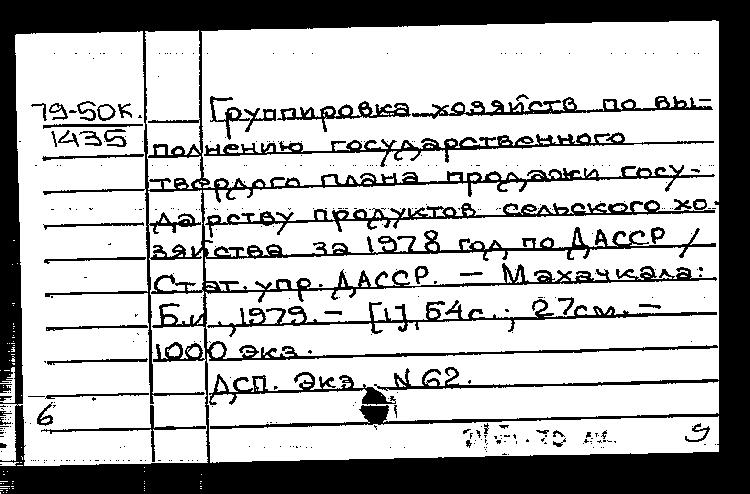 79-50к.
1435
Группировка хозяйств по вы-
полнению государственного
твердого плана продажи госу-
дарству продуктов сельского хо-
зяйства за 1978 год по ДАССР /
Стат. упр. ДАССР. — Махачкала:
Б.и., 1979. — [1], 54с.; 27см. —
1000 экз.
ДСП. Экз. N 62.
6